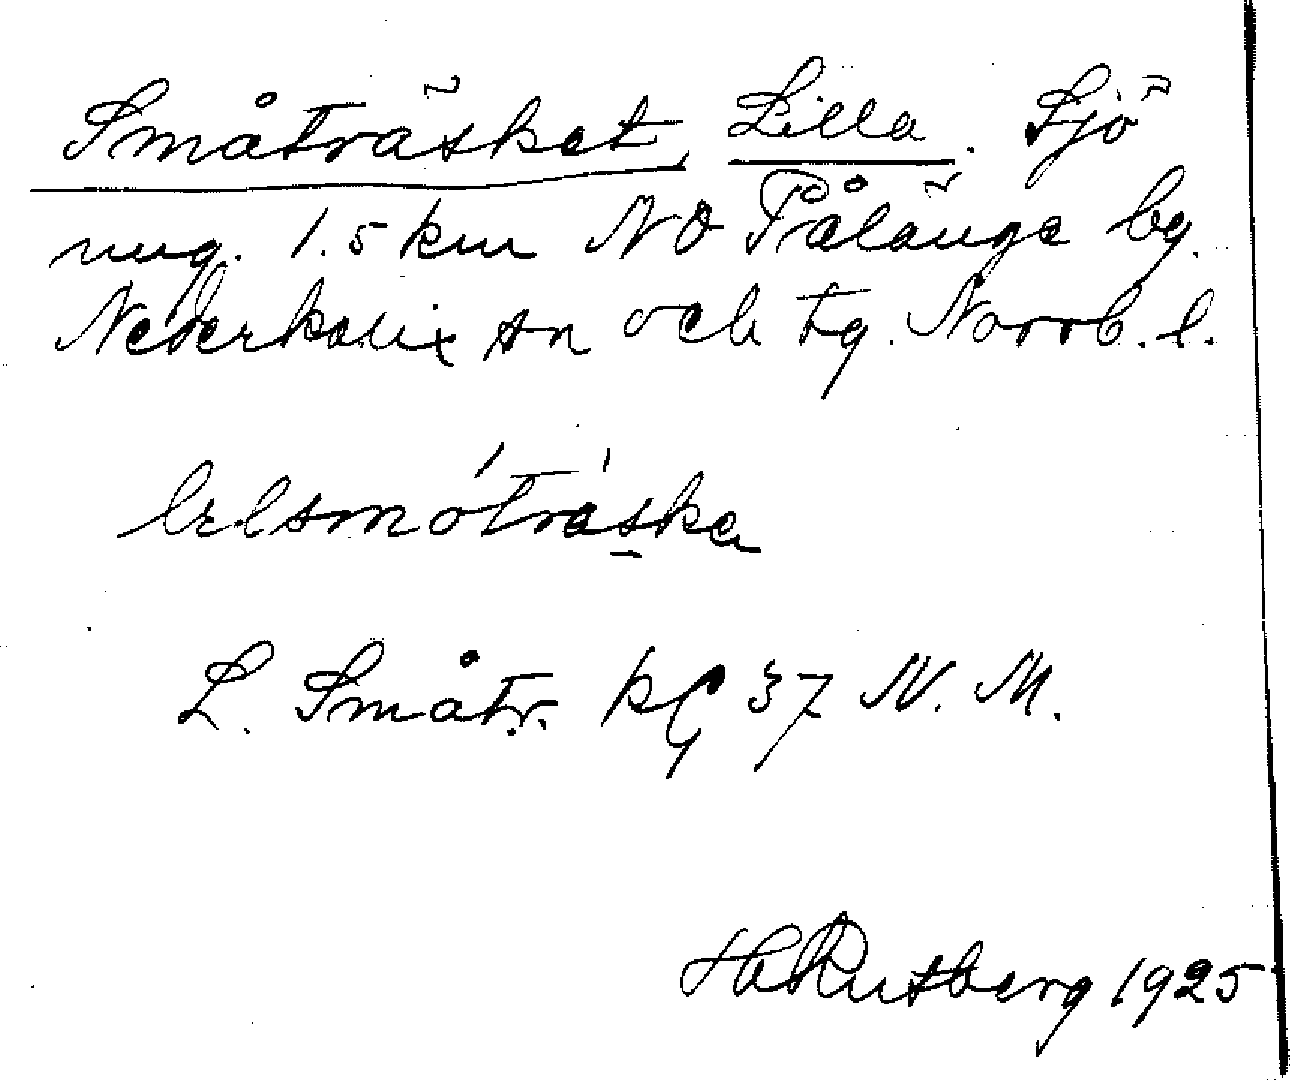 Småträsket, Lilla. Sjö
ung. 1.5 km NO Pålänge by.
Nederkalix sn och tg. Norrb. l.
lɛlsmótráska
L. Småtr. kG 37 N. M.
H Rutberg 1925